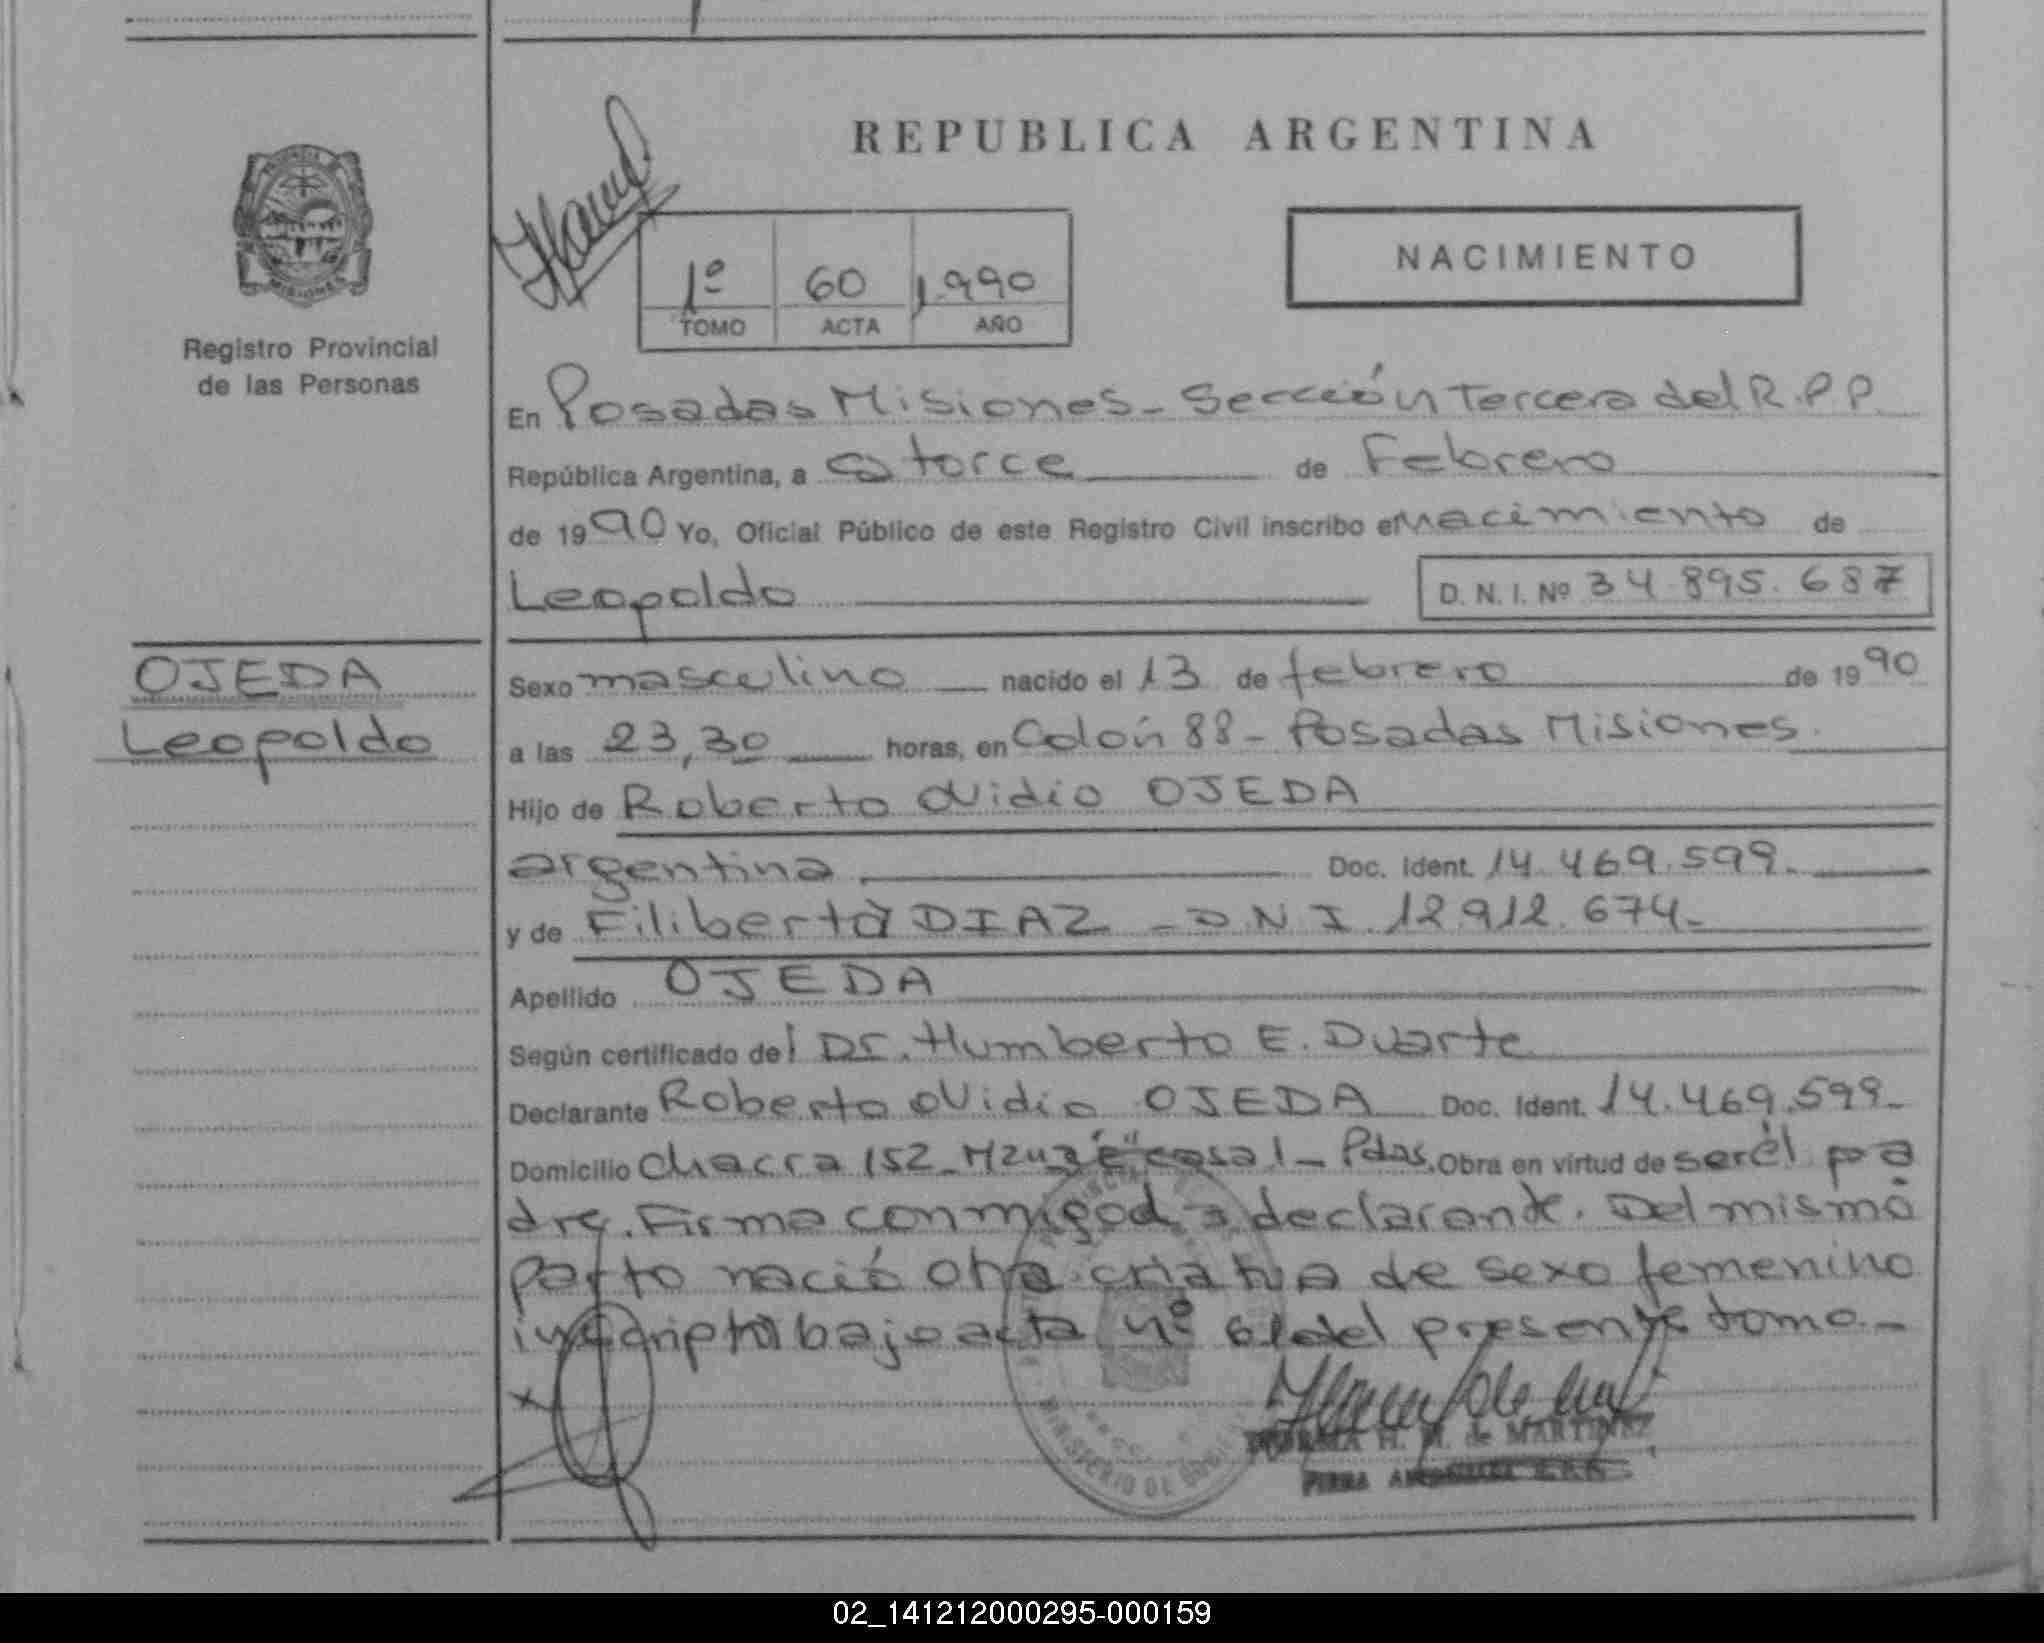 REPUBLICA ARGENTINA
NACIMIENTO
1º 60 1.990
TOMO ACTA AÑO
PROVINCIA DE
MISIONES
Registro Provincial
de las Personas
En Posadas Misiones - Sección Tercera del R.P.P.
República Argentina, a catorce de Febrero
de 1990 Yo, Oficial Público de este Registro Civil inscribo el nacimiento de
Leopoldo D. N. I. Nº 34.895.687
OJEDA
Leopoldo
Sexo masculino nacido el 13 de febrero de 1990
a las 23,30 horas, en Colón 88 - Posadas Misiones.
Hijo de Roberto Ovidio OJEDA
argentina Doc. Ident. 14.469.599.
y de Filiberta DIAZ - D.N.I. 12.912.674-
Apellido OJEDA
Según certificado del Dr. Humberto E. Duarte
Declarante Roberto Ovidio OJEDA Doc. Ident. 14.469.599-
Domicilio Chacra 152 - casa 1 - Pdas. Obra en virtud de ser él pa
dre. Firma conmigo declarante. Del mismo
parto nació otra criatura de sexo femenino
inscripta bajo acta nº 61 del presente tomo.-
MINISTERIO DE GOBIERNO
NORMA H. M. de MARTINEZ
FIRMA
02_141212000295-000159